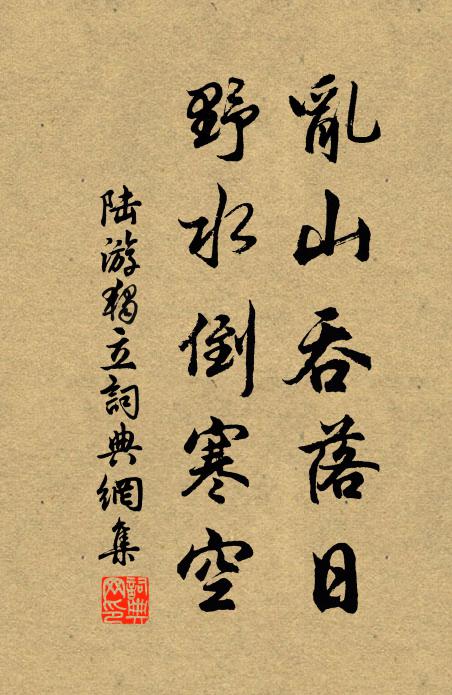 亂山吞落日
野水倒寒空
陸游獨立詞典網集
詞典网印